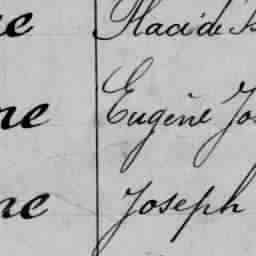 ne Placide
ne Eugène Jos
ne Joseph